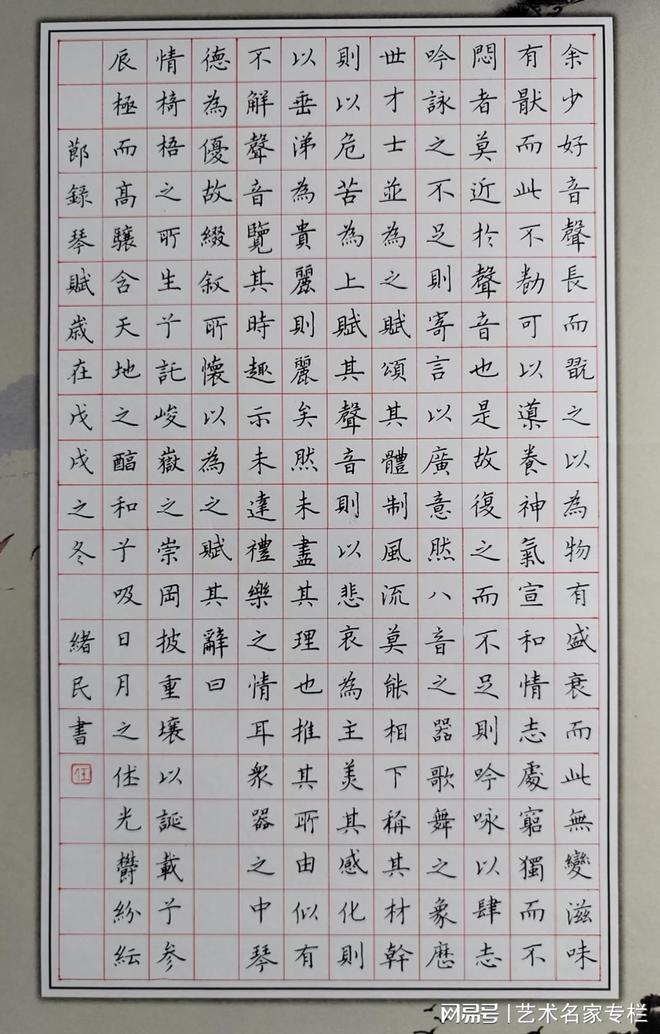 余少好音聲長而翫之以為物有盛衰而此無變滋味
有猒而此不勌可以導養神氣宣和情志處窮獨而不
悶者莫近於聲音也是故復之而不足則吟咏以肆志
吟詠之不足則寄言以廣意然八音之器歌舞之象歷
世才士並為之賦頌其體制風流莫能相下稱其材幹
則以危苦為上賦其聲音則以悲哀為主美其感化則
以垂涕為貴麗則麗矣然未盡其理也推其所由似有
不解聲音覽其時趣示未達禮樂之情耳衆器之中琴
德為優故綴叙所懷以為之賦其辭曰
情椅梧之所生兮託峻嶽之崇岡披重壤以誕載兮参
辰極而高驤含天地之醕和兮吸日月之休光鬱紛紜
節録琴賦歲在戊戌之冬 緒民書
任
网易号 | 艺术名家专栏